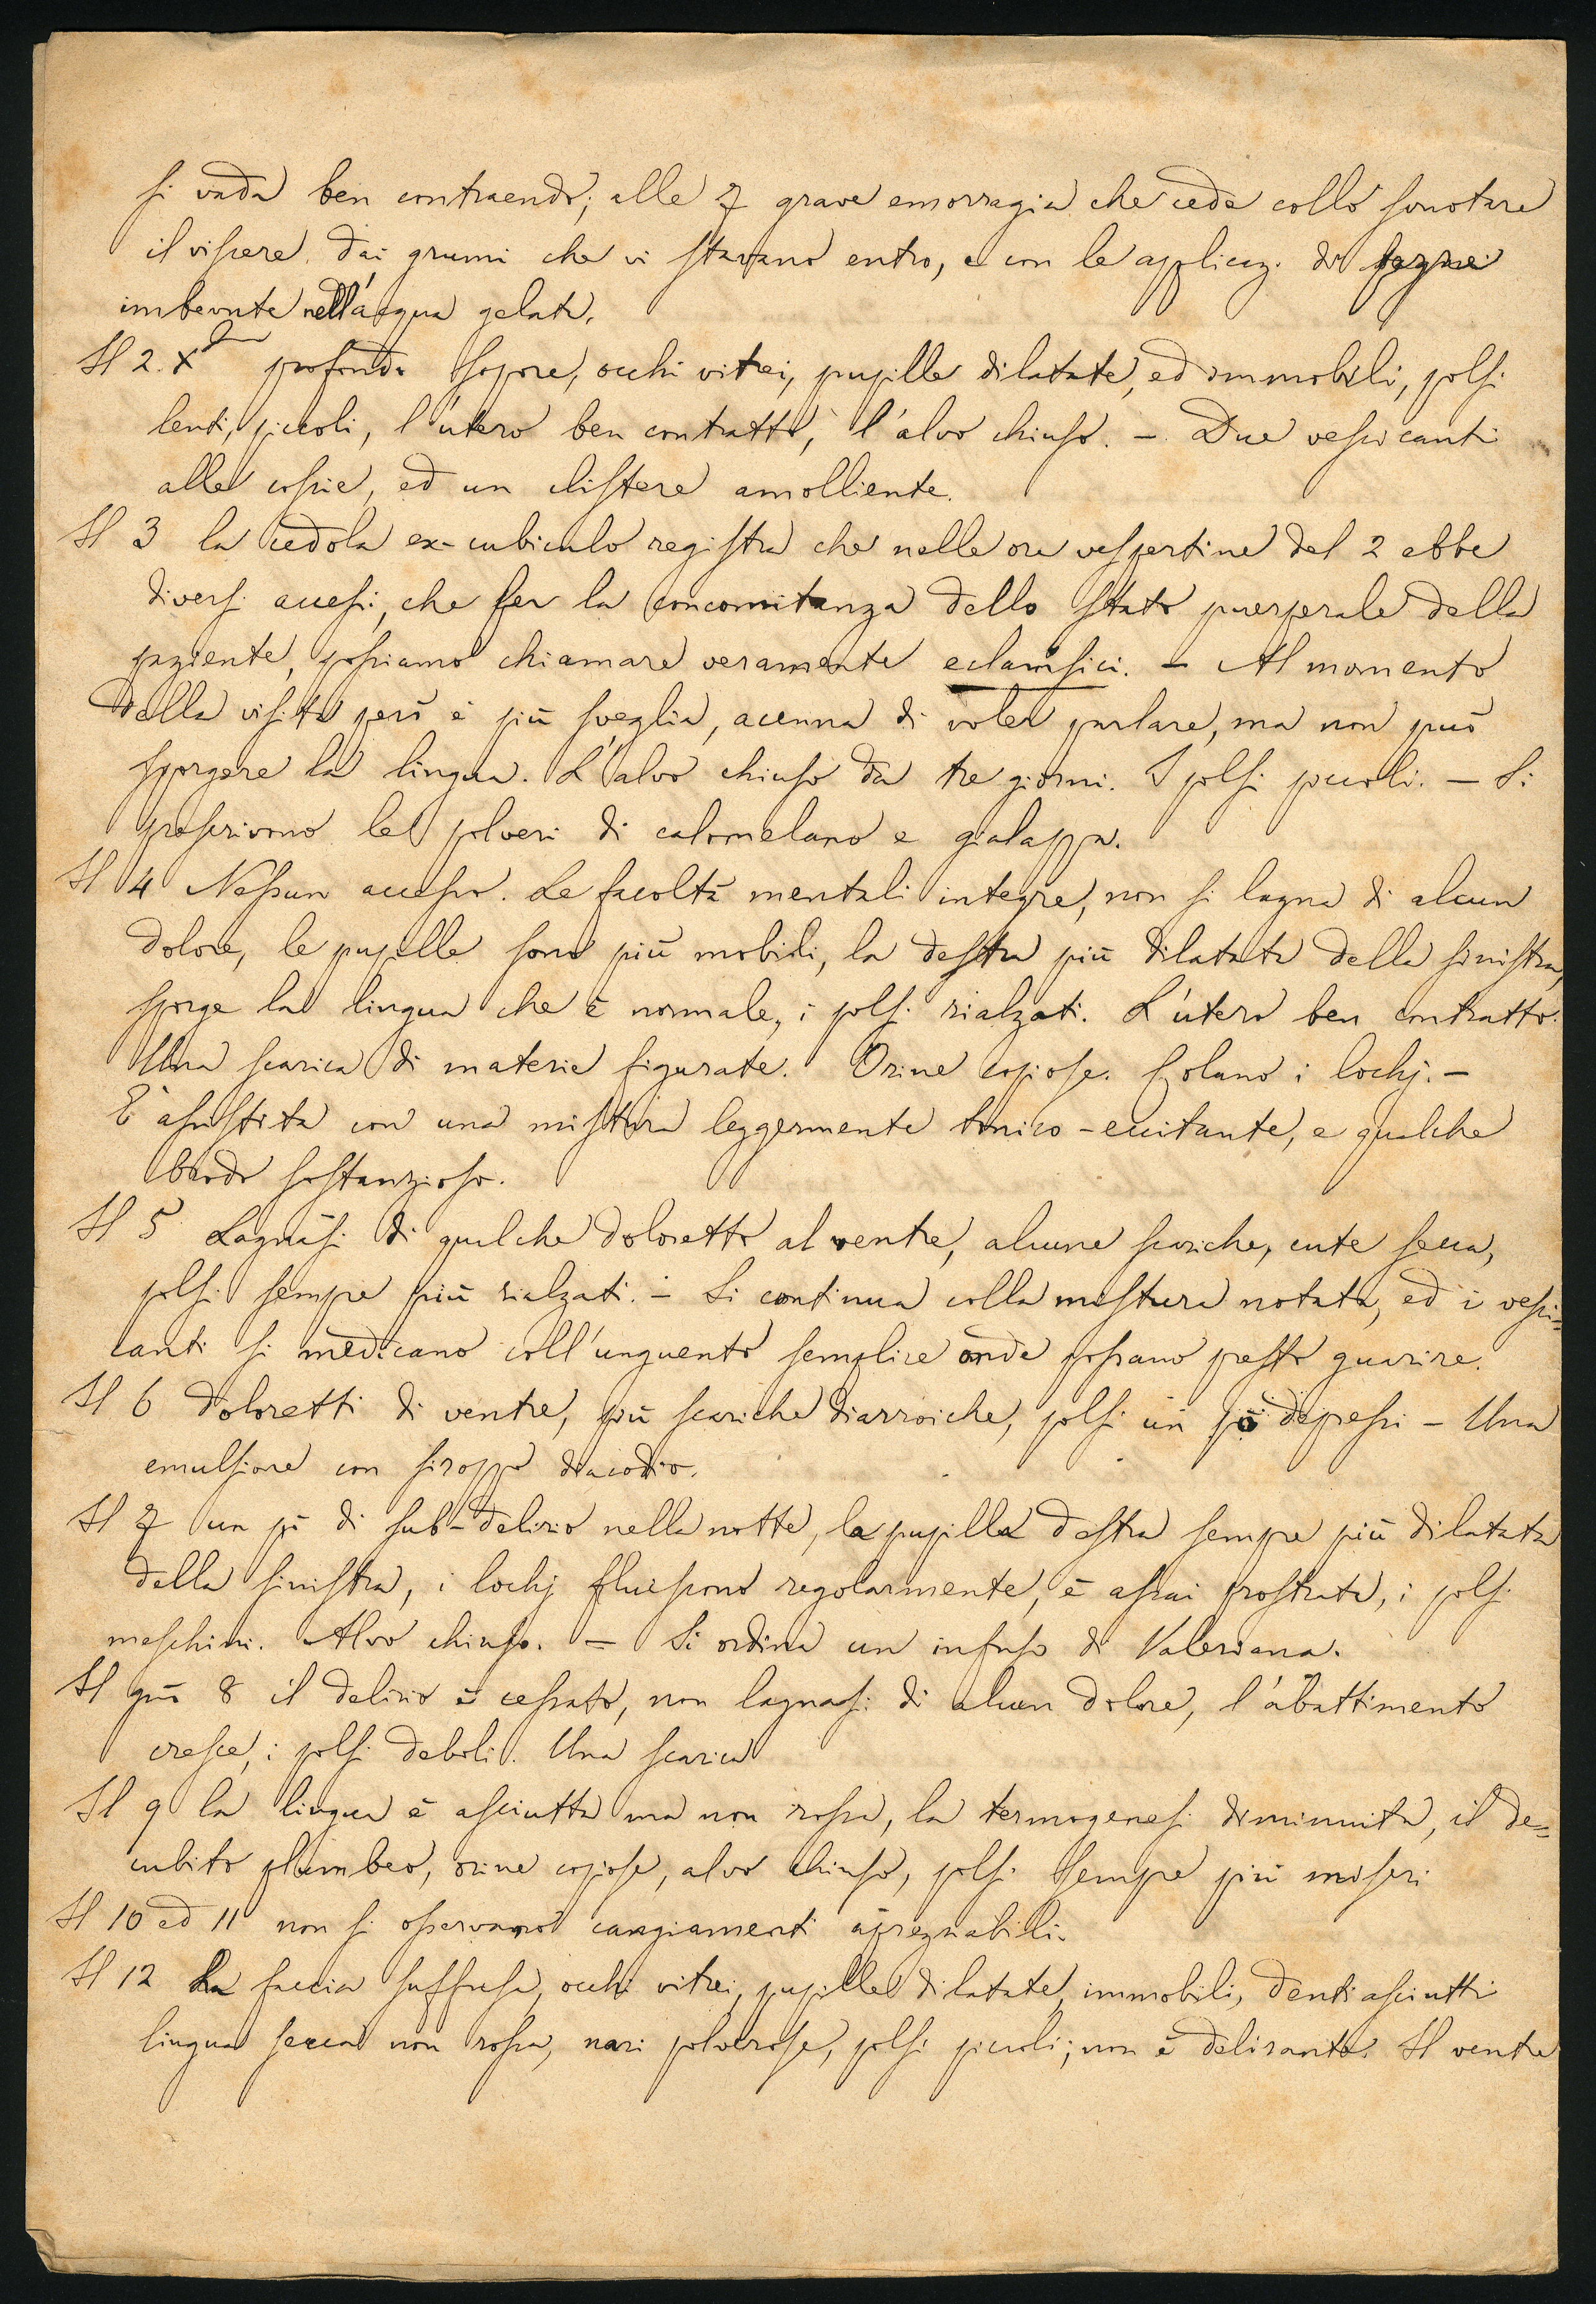 si vada ben contraendo; alle 7 grave emorragia che cede collo svuotare
il viscere dai grumi che vi stavano entro, e con le applicaz. di
imbevute nell'acqua gelata.
Il 2. Xbre profondo sopore, occhi vitrei, pupille dilatate, ed immobili, polsi
lenti, piccoli, l'utero ben contratto, l'alvo chiuso. – Due vescicanti
alle coscie, ed un clistere amolliente.
Il 3 la cedola ex-cubiculo registra che nelle ore vespertine del 2 ebbe
diversi accessi, che per la concomitanza dello stato puerperale della
paziente, possiamo chiamare veramente eclamsici. – Al momento
della visita però è più sveglia, acenna di voler parlare, ma non può
sporgere la lingua. L'alvo chiuso da tre giorni. I polsi piccoli. – Si
prescrivono le polveri di calomelano e gialappa.
Il 4 Nessun accesso. Le facoltà mentali integre, non si lagna di alcun
dolore, le pupille sono più mobili, la destra più dilatata della sinistra,
sporge la lingua che è normale, i polsi rialzati. L'utero ben contratto.
Una scarica di materie figurate. Orine copiose. Colano i lochj. –
È assistita con una mistura leggermente tonico-eccitante, e qualche
brodo sostanzioso.
Il 5 Lagnasi di qualche doloretto al ventre, alcune scariche, cute secca,
polsi sempre più rialzati. – Si continua colla mistura notata, ed i vesci=
canti si medicano coll'unguento semplice onde possano presto guarire.
Il 6 Doloretti di ventre, più scariche diarroiche, polsi un pò depressi – Una
emulsione con siroppo diacodio.
Il 7 un pò di sub-delirio nella notte, la pupilla destra sempre più dilatata
della sinistra, i lochj fluiscono regolarmente, è assai prostrata, i polsi
meschini. Alvo chiuso. – Si ordina un infuso di Valeriana.
Il gno 8 il delirio è cessato, non lagnasi di alcun dolore, l'abattimento
cresce, i polsi deboli. Una scarica
Il 9 la lingua è asciutta ma non rossa, la termogenesi diminuita, il de=
cubito plumbeo, orine copiose, alvo chiuso, polsi sempre più miseri
Il 10 ed 11 non si osservano cangiamenti apregnabili.
Il 12 La faccia suffusa, occhi vitrei, pupille dilatate, immobili, denti asciutti
lingua secca non rossa, nari polverose, polsi piccoli; non è delirante. Il ventre